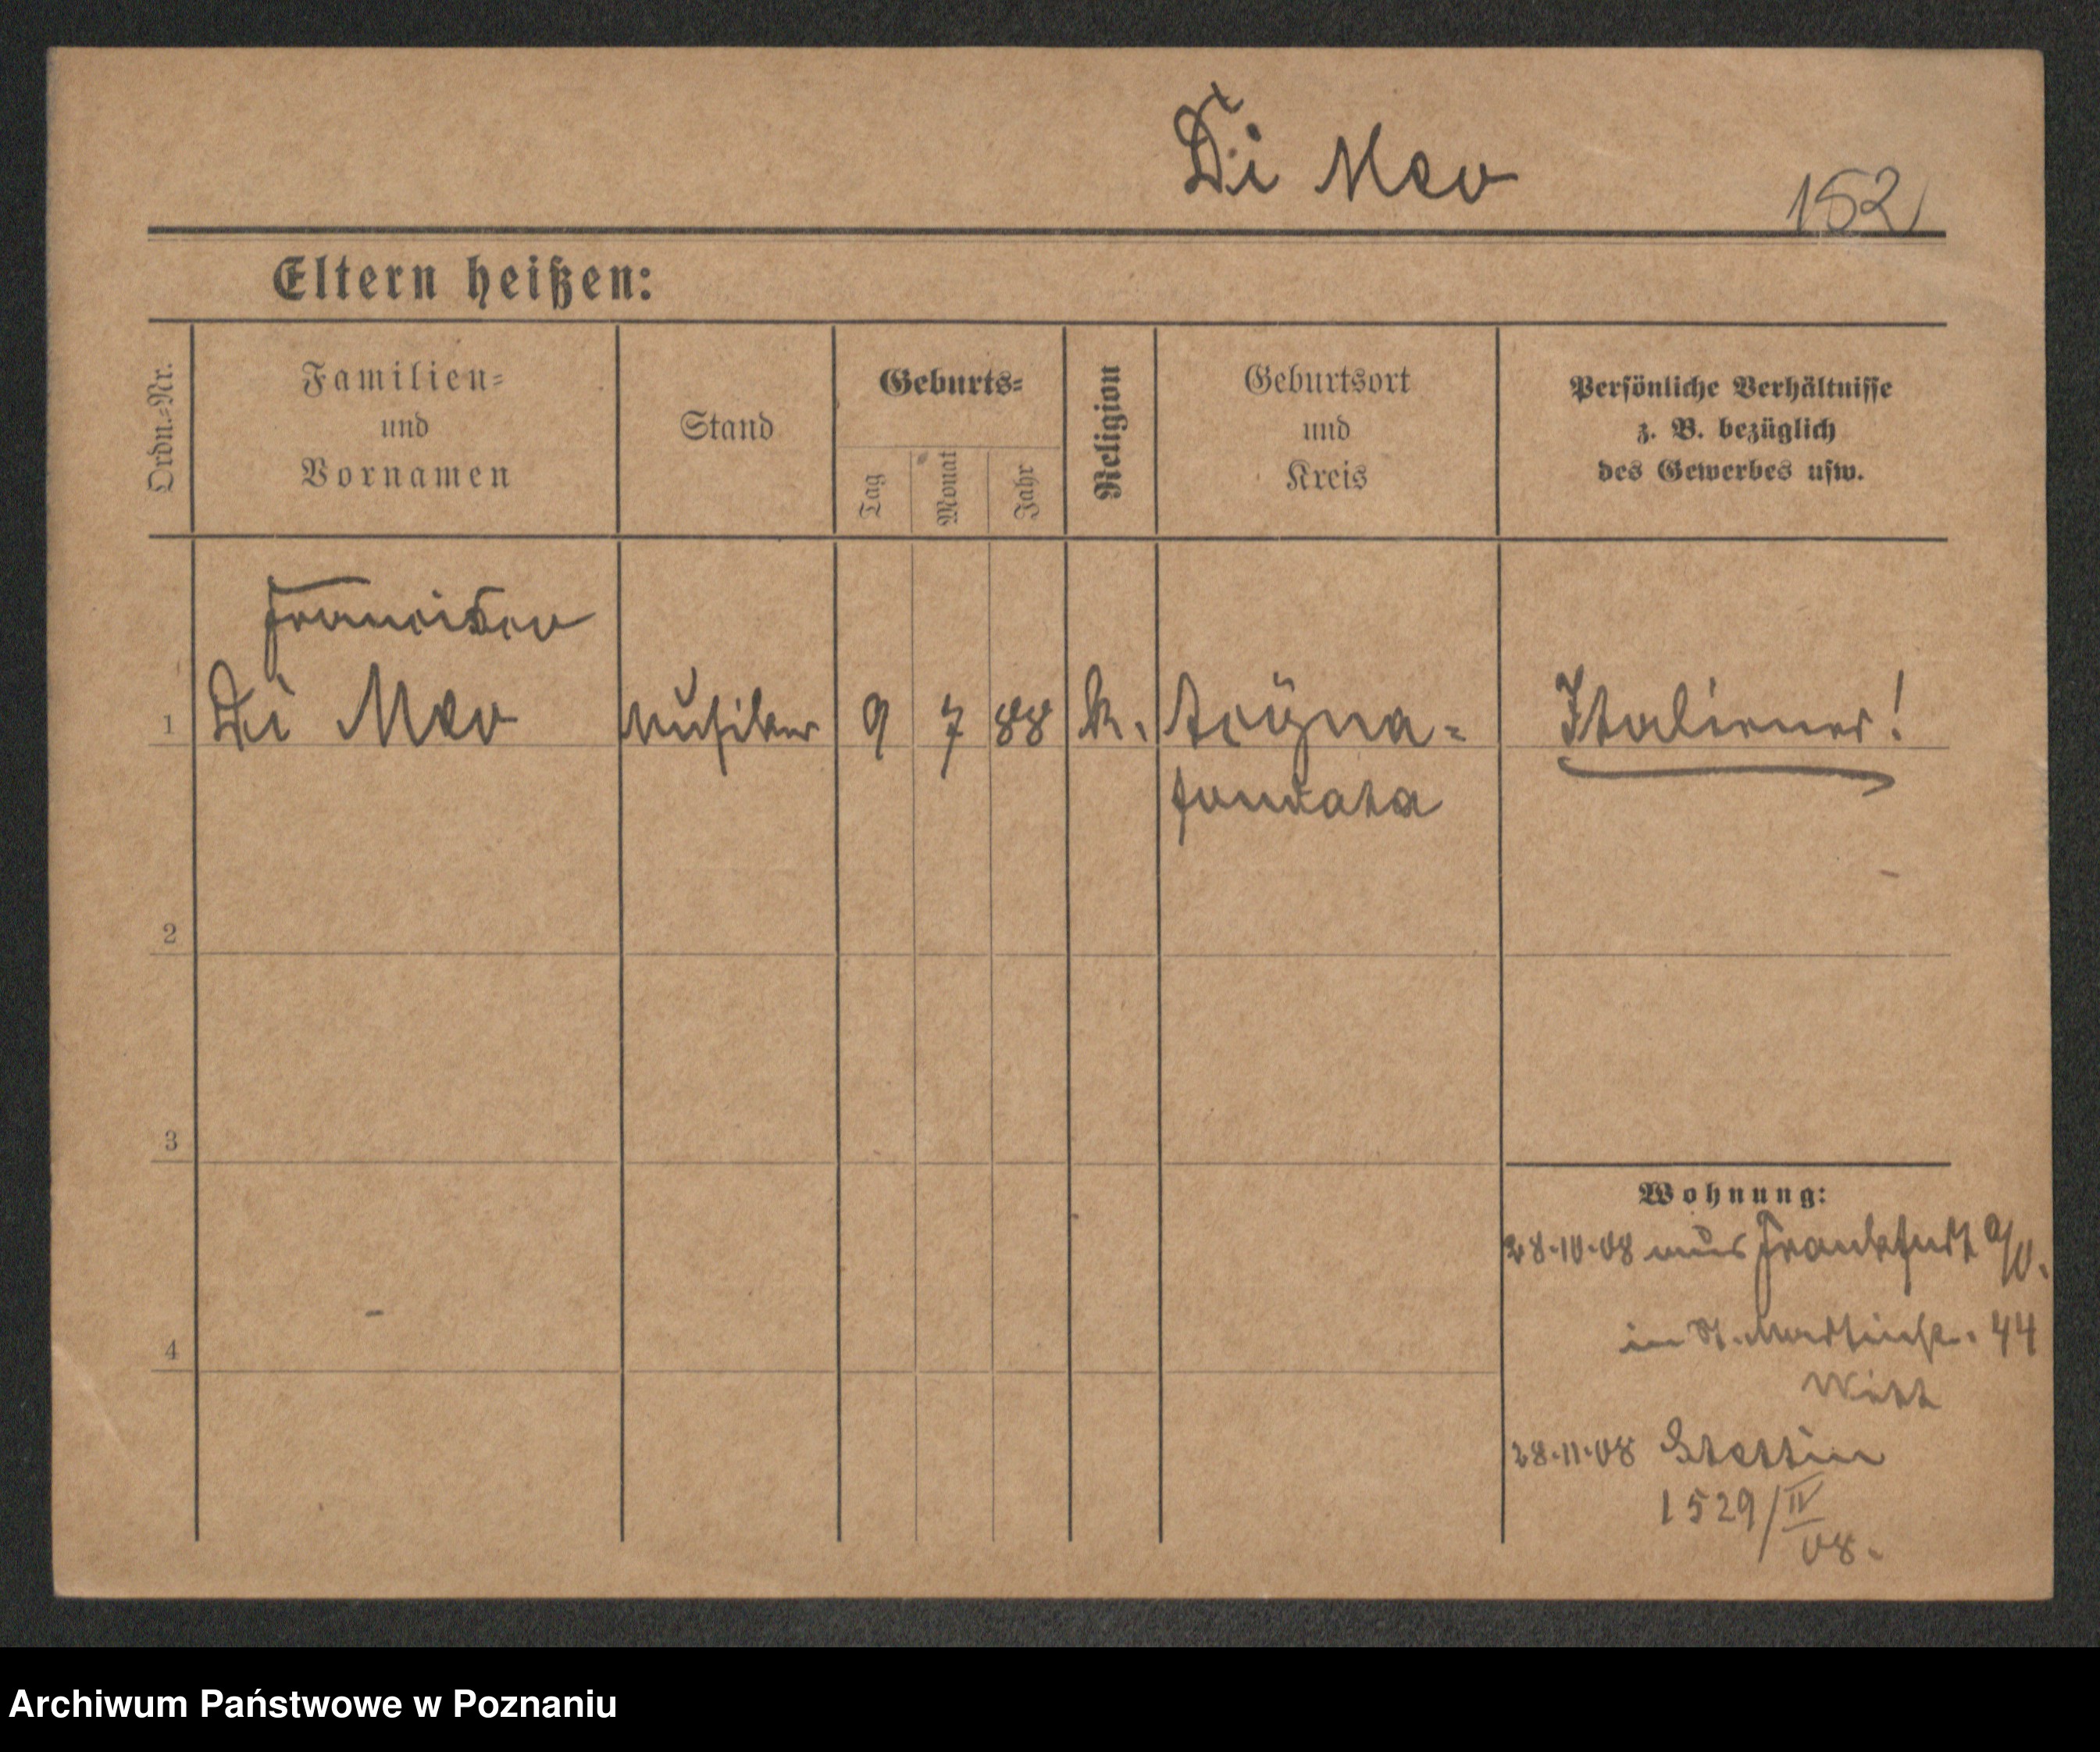 Di Meo
152
Eltern heißen:
Ordn.-Nr.
Familien-
und
Vornamen
Stand
Geburts-
Tag
Monat
Jahr
Religion
Geburtsort
und
Kreis
Persönliche Verhältnisse
z. B. bezüglich
des Gewerbes usw.
Francisco
1 Di Meo Musiker 9 7 88 k. Italiener!
fondata
2
3
4
Wohnung:
28.10.08 aus Frankfurt a/O.
in St. Martinstr. 44
Witt
28.11.08 Stettin
1529/IV
08.
Archiwum Państwowe w Poznaniu